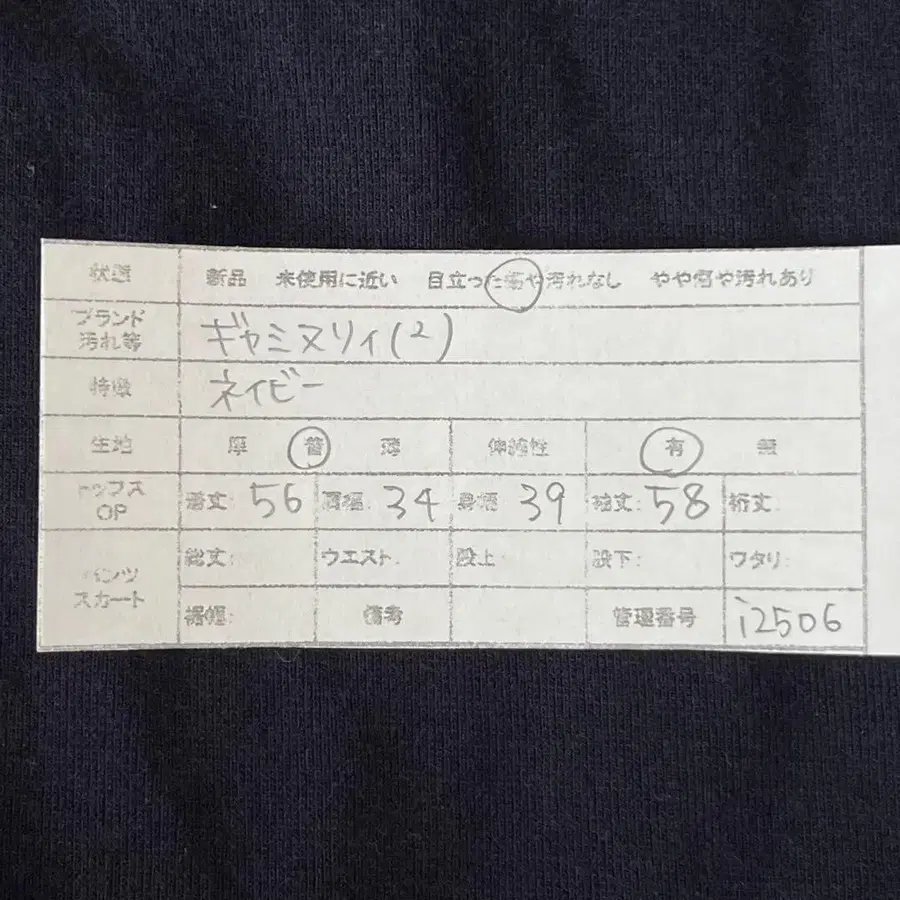 状態 新品 未使用に近い 目立った傷や汚れなし やや傷や汚れあり
ブランド
汚れ等 ギャミヌリィ(2)
特徴 ネイビー
生地 厚 普 薄 伸縮性 有 無
トップス
OP 着丈: 56 肩幅: 34 身幅: 39 袖丈: 58 裄丈:
パンツ
スカート 総丈: ウエスト: 股上: 股下: ワタリ:
裾幅: 備考 管理番号 i2506